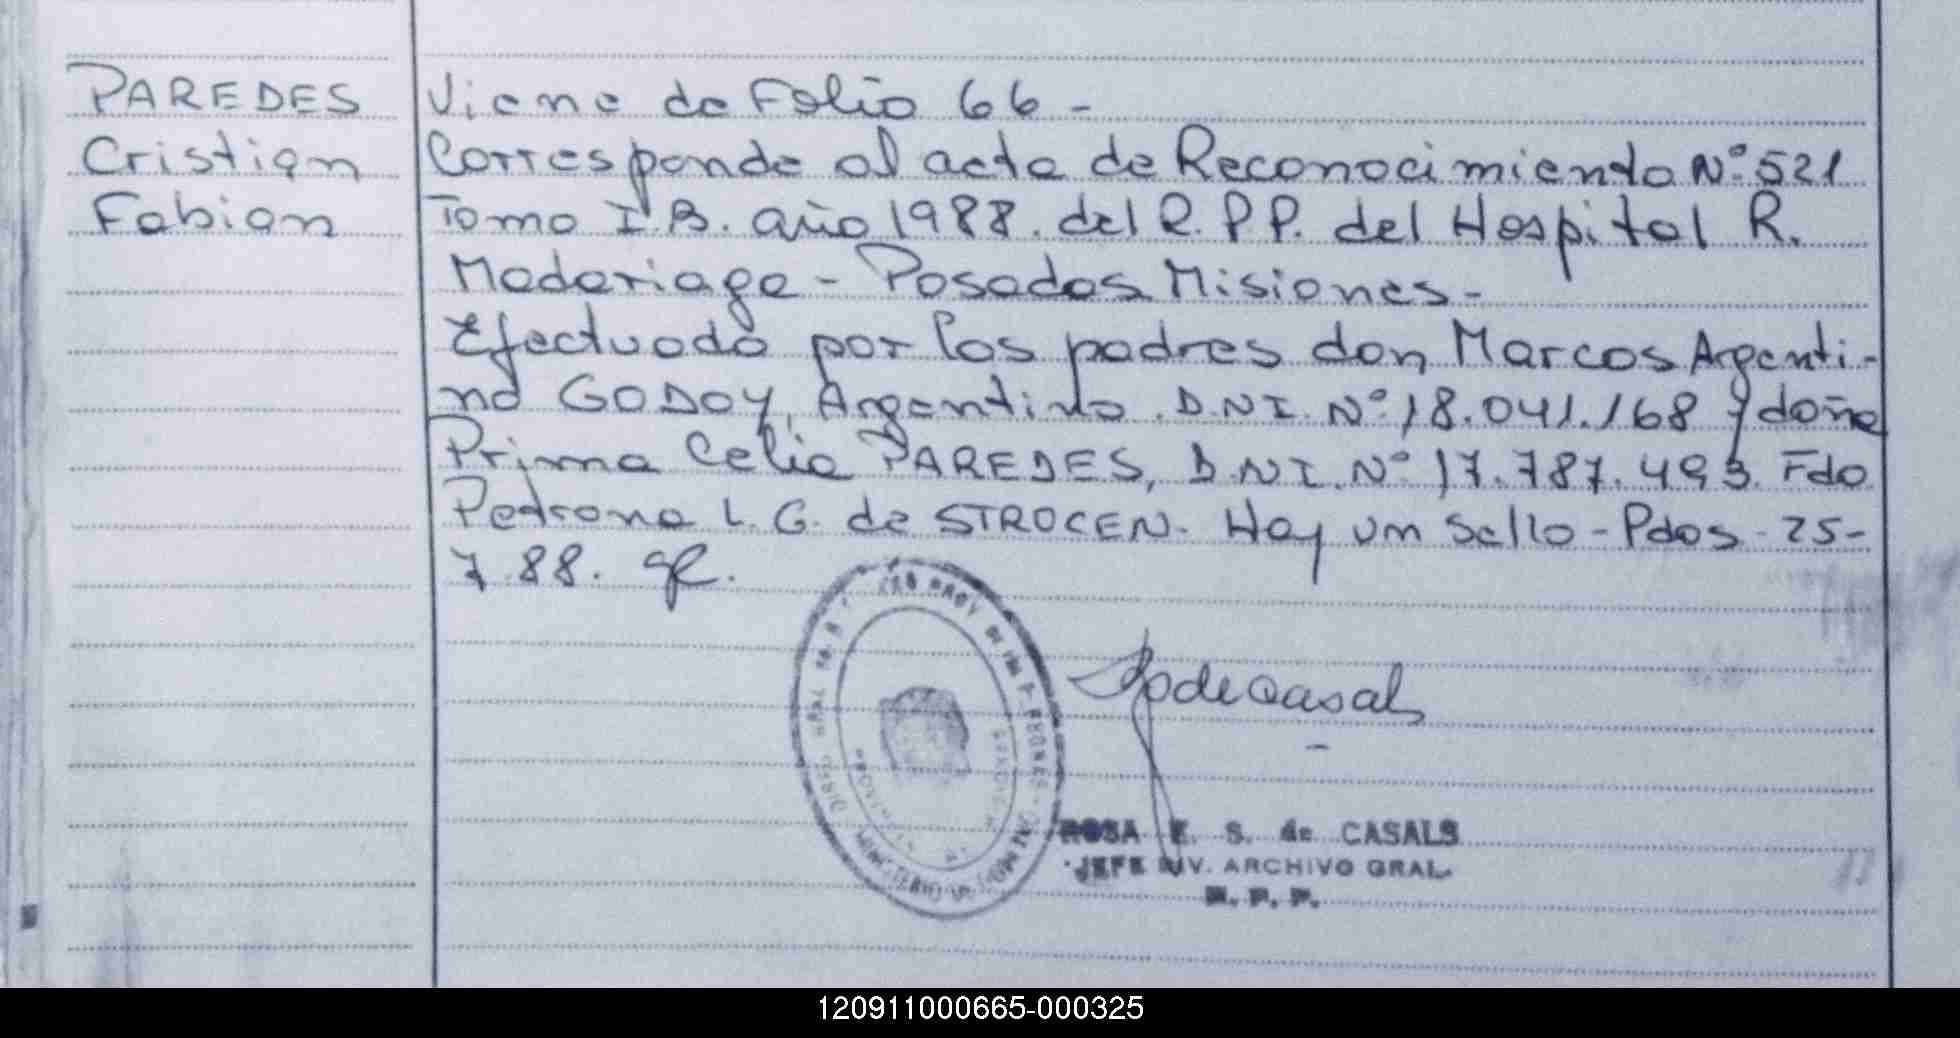 PAREDES
Cristian
Fabian
Viene de Folio 66 -
Corresponde al acta de Reconocimiento N° 521
Tomo I.B. año 1988. del R.P.P. del Hospital R.
Madariaga - Posadas Misiones -
Efectuado por los padres don Marcos Argenti-
no GODOY, Argentino. D.N.I. N° 18.041.168 y doña
Prima Celia PAREDES, D.N.I. N° 17.787.493. Fdo
Petrona L. G. de STROCEN. Hay un Sello - Pdas - 25-
7.88.
ROSA E. S. de CASALS
JEFE DIV. ARCHIVO GRAL.
R. P. P.
120911000665-000325